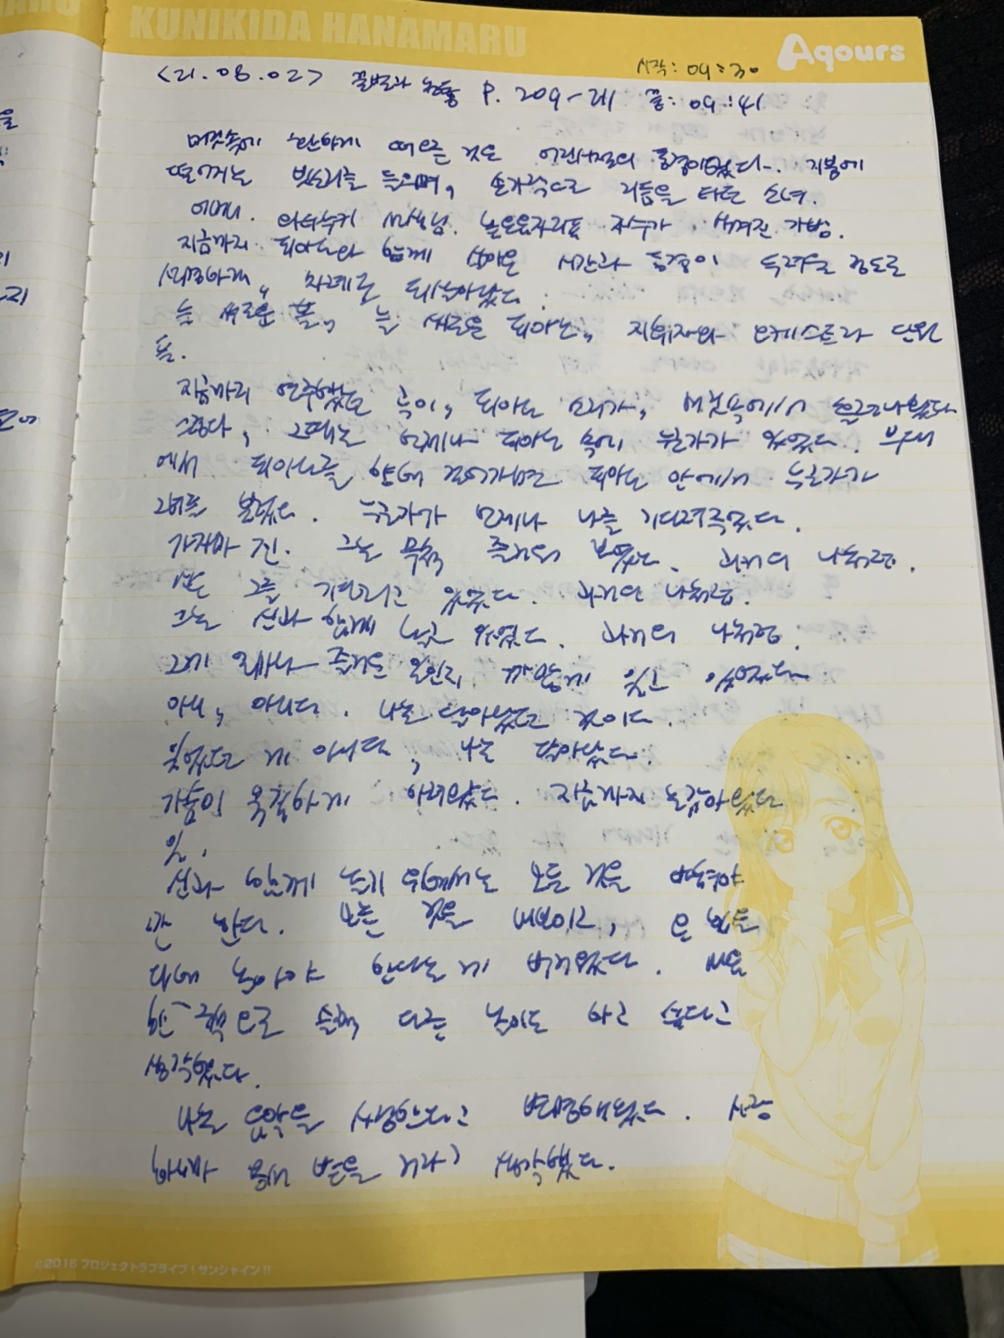 KUNIKIDA HANAMARU
Aqours
시작: 09:30
<21.08.02> 꿀벌과 천둥 P. 209-211 끝: 09:41
머릿속에 선연하게 떠오른 것은 어린시절의 풍경이었다. 지붕에
떨어지는 빗소리를 들으며, 손가락으로 리듬을 타던 소녀.
어머니. 와타누키 선생님. 높은음자리표 자수가 새겨진 가방.
지금까지 피아노와 함께 살아온 시간과 풍경이 두려울 정도로
선명하게, 차례로 되살아났다.
늘 새로운 홀, 늘 새로운 피아노, 지휘자와 오케스트라 단원
들.
지금까지 연주했던 곡이, 피아노 소리가, 머릿속에서 흘러나왔다
그랬다, 그때는 언제나 피아노 속에 뭔가가 있었다. 무대
에서 피아노를 향해 걸어가면 피아노 안에서 누군가가
그녀를 불렀다. 누군가가 언제나 나를 기다려주었다.
가자마 진. 그는 무척 즐거워 보였는. 과거의 나처럼.
신도 그를 기다리고 있었다. 과거의 나처럼.
그는 신과 함께 놀고 있었다. 과거의 나처럼.
그게 얼마나 즐거운 일인지 까맣게 잊고 있었다
아니, 아니다. 나는 달아났던 것이다.
잊었던 게 아니다, 나는 달아났다.
가슴이 욱신하게 아려왔다. 지금까지 눈감아왔던
일.
신과 함께 놀기 위해서는 모든 것을
만 한다. 모든 것을 내보이고, 온 힘을
다해 놀아야 한다는 게 버거웠다. 마음
한구석으로 슬쩍 다른 놀이도 하고 싶다고
생각했다.
나는 음악을 사랑한다고 변명해왔다. 사랑
생각했다.
©2016 プロジェクトラブライブ!サンシャイン!!